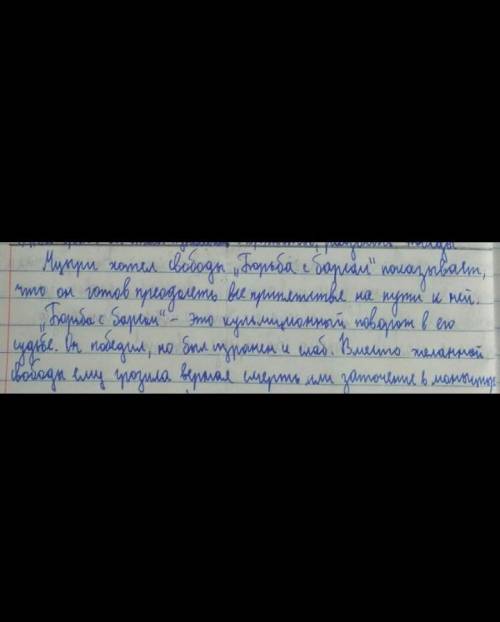 победы
Мцыри хотел свободы „Борьба с барсом" показывает,
что он готов преодолеть все припятствия на пути к ней.
„Борьба с барсом" - это кульмиционный поворот в его
судьбе. Он победил, но был изранен и слаб. Вместо желанной
свободы ему грозила верная смерть или заточение в